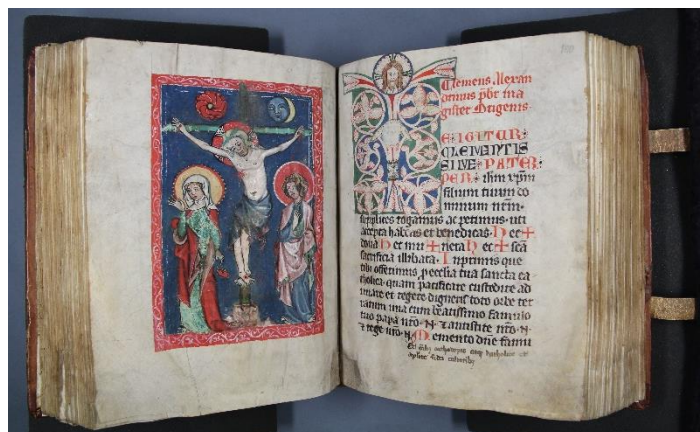 Clemens Alexan
drinus pbr ma
gister Origenis.
E IGITUR:
CLEMENTIS
SIME PATER
PER ihm xpm
filium tuum do
minum nrm
supplices rogamus ac petimus. uti
accepta habeas et benedicas. h ec +
dona h ec mu + nera h ec + scā
sacrificia illibata. Inprimis que
tibi offerimus, p ecclia tua sancta ca
tholica. quam pacificare custodire ad
unare et regere digneris toto orbe ter
rarum una cum beatissimo famulo
tuo papa nro .N. et antistite nro .N.
et rege nro .N. Memento dne famu